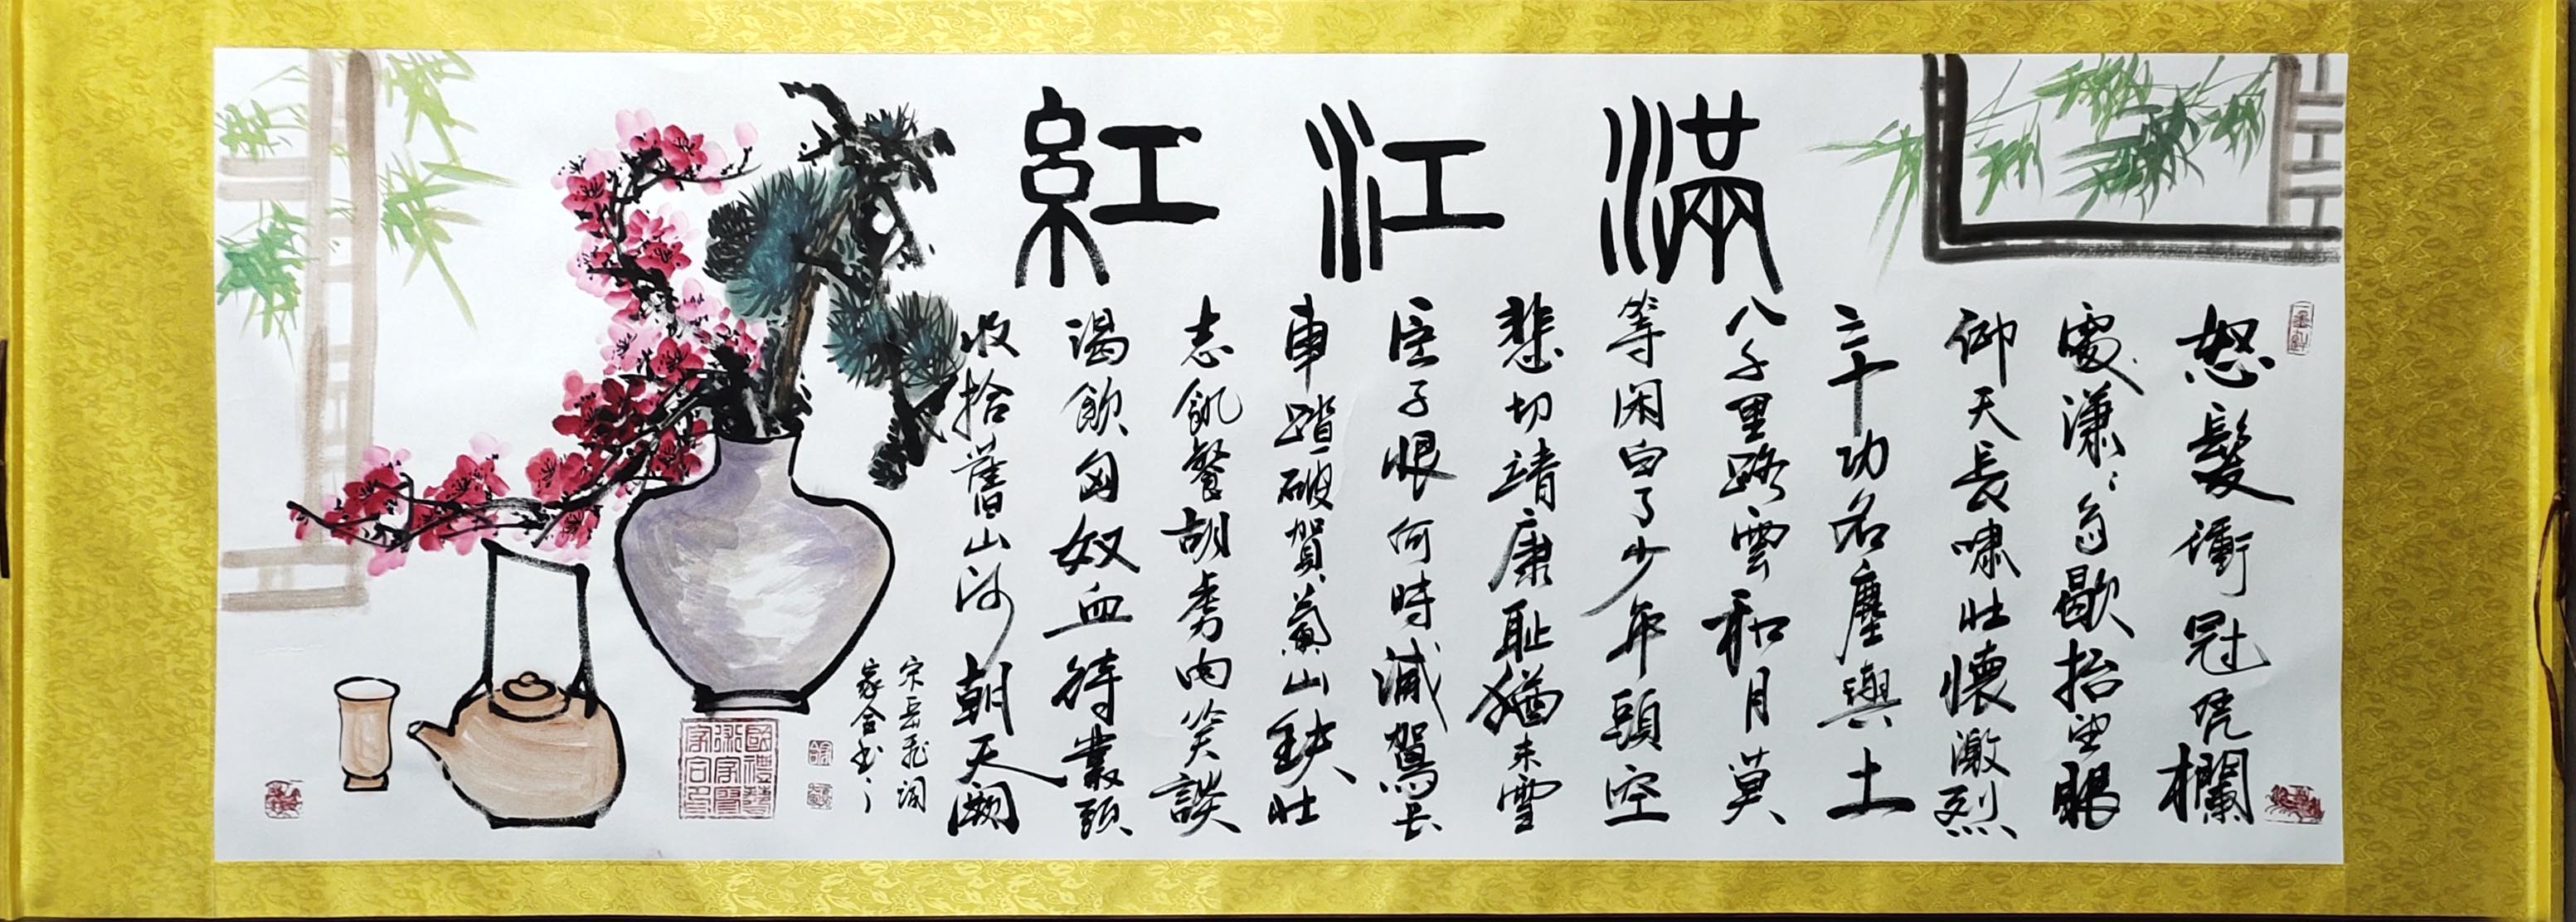 滿江紅
怒髮衝冠凭欄
處瀟〻雨歇抬望眼
仰天長嘯壯懷激烈
三十功名塵與土
八千里路雲和月莫
等闲白了少年頭空
悲切靖康恥猶未雪
臣子恨何時滅駕长
車踏破賀蘭山缺壯
志飢餐胡虜肉笑談
渴飲匈奴血待從頭
收拾舊山河朝天闕
宋岳飛詞
家合书
國禮藝術家賈家合印